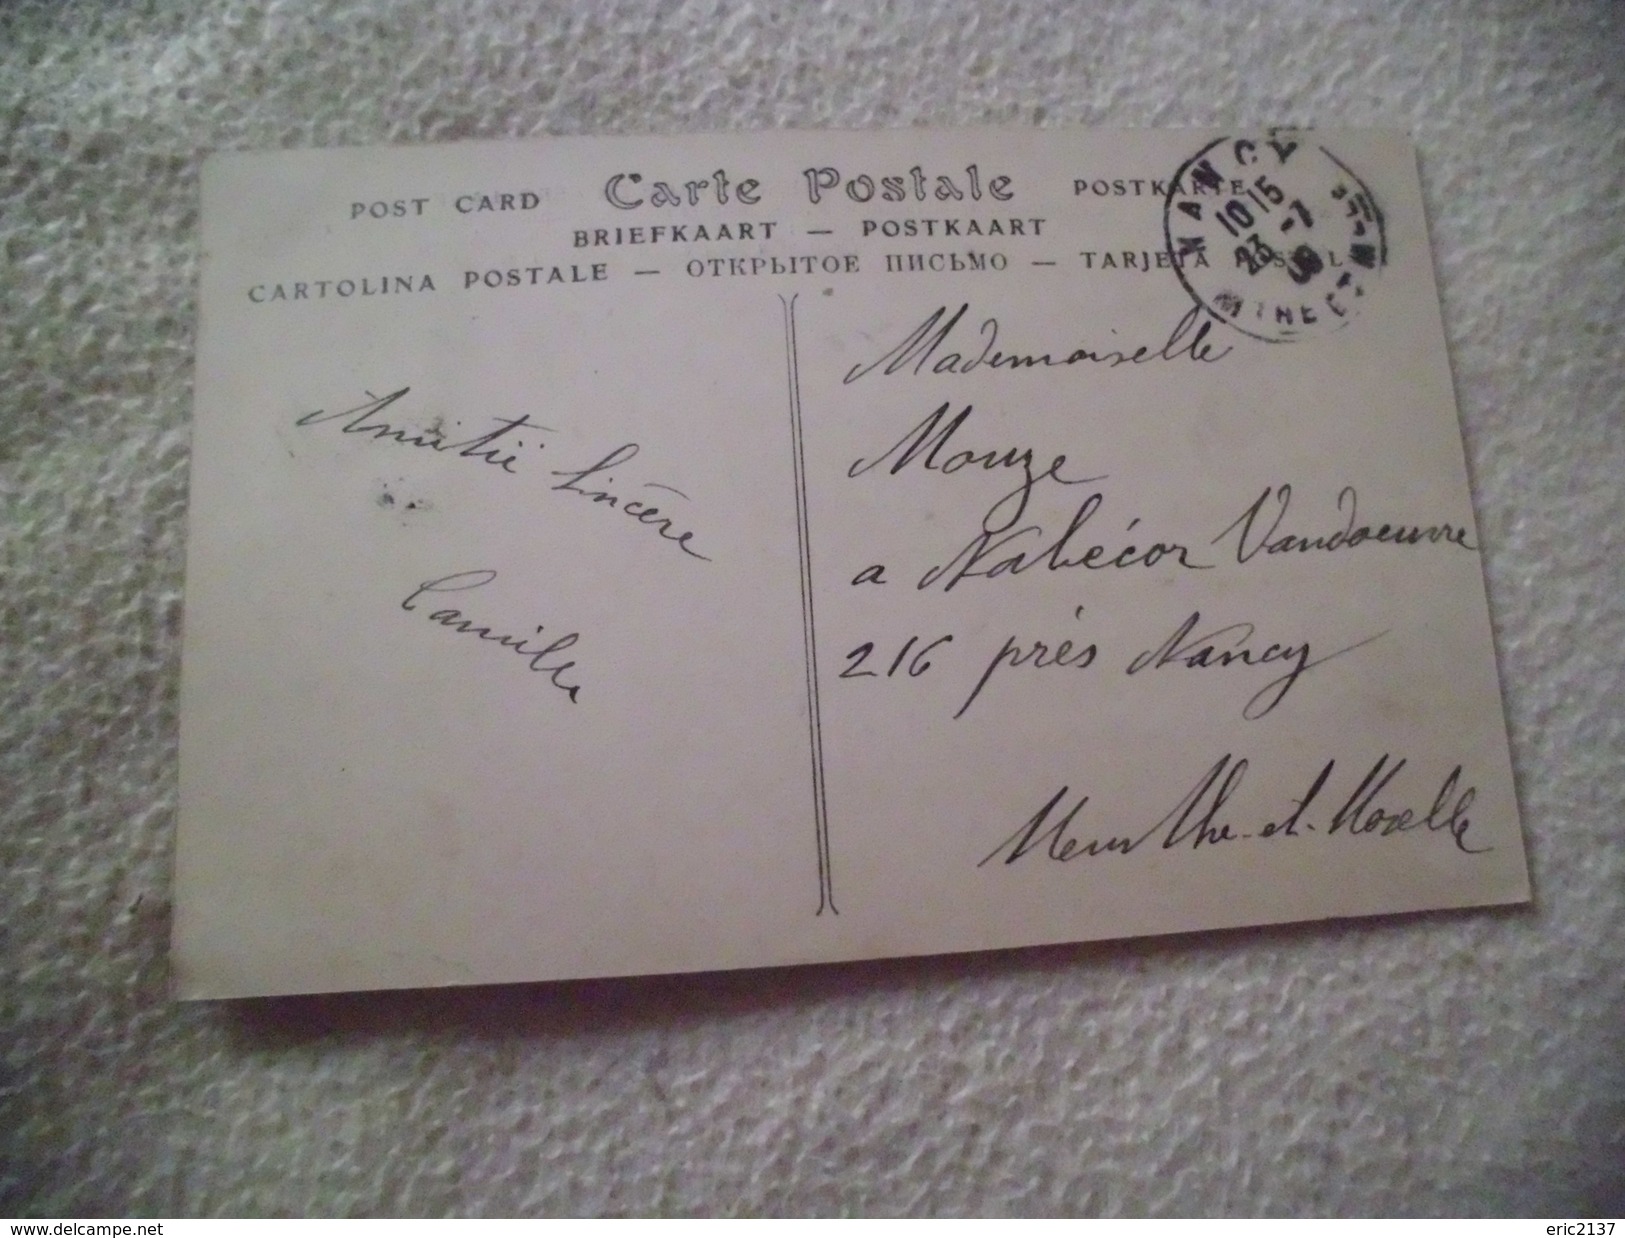 POST CARD Carte Postale POSTKARTE
BRIEFKAART — POSTKAART
CARTOLINA POSTALE — ОТКРЫТОЕ ПИСЬМО — TARJETA POSTAL
NANCY
10 15
23 -7
MTHE ET M
Amitié Sincère
Camille
Mademoiselle
Mouze
a Nabécor Vandoeuvre
216 près Nancy
Meurthe-et-Moselle
www.delcampe.net
eric2137